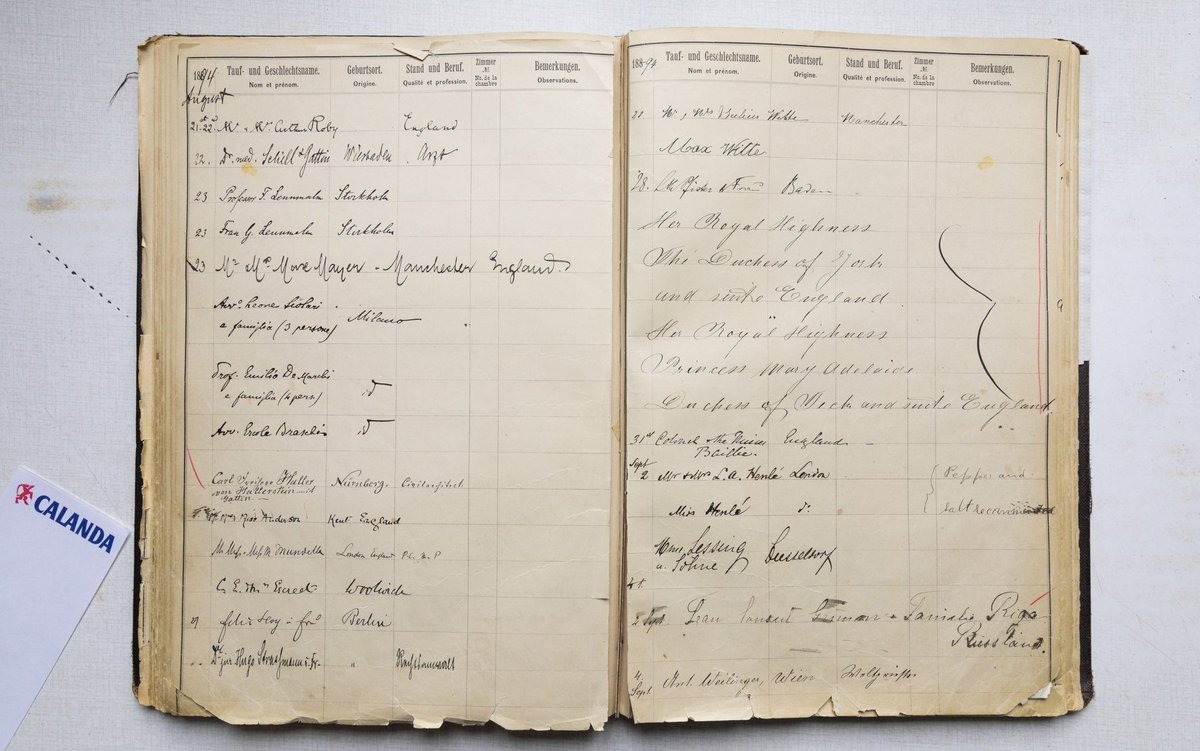 1894
Tauf- und Geschlechtsname.
Nom et prénom.
Geburtsort.
Origine.
Stand und Beruf.
Qualité et profession.
Zimmer
№
No. de la
chambre
Bemerkungen.
Observations.
August
21-22 Mr & Mrs Arthur Roby England
22. Dr. med. Schill & Gattin Wiesbaden Arzt
23 Professor F. Lennmalm Stockholm
23 Frau G. Lennmalm Stockholm
23 Mr Mrs Mayer - Manchester England
Avvo Leone
e famiglia (3 persone) Milano
Prof. Emilio De Marchi
e famiglia (4 pers)
Avv. Ercole
Carl Haller
von Hallerstein
Gattin Nürnberg.
Miss Anderson Kent England
Mundella London P.C. M.P
C. E. Mrs Woolwich
29 Felix Berlin
Dr jur Hugo Strassmann u. Fr. " Rechtsanwalt
CALANDA
1894
Tauf- und Geschlechtsname.
Nom et prénom.
Geburtsort.
Origine.
Stand und Beruf.
Qualité et profession.
Zimmer
№
No. de la
chambre
Bemerkungen.
Observations.
Mr, Mrs Witte Manchester
Max Witte
28. Frau Baden
Her Royal Highness
The Duchess of York
and suite England
Her Royal Highness
Princess Mary Adelaide
Duchess of Teck and suite England
31st Colonel the Misses England
Baillie.
Sept
2 Mr & Mrs L. A. Henlé London
Pepper and
Miss Henlé do
salt recommended
Lessing
u. Söhne Duesseldorf
2 Sept. Frau Consul & Familie Riga
Russland.
4.
Sept. Ant. Weilinger, Wien